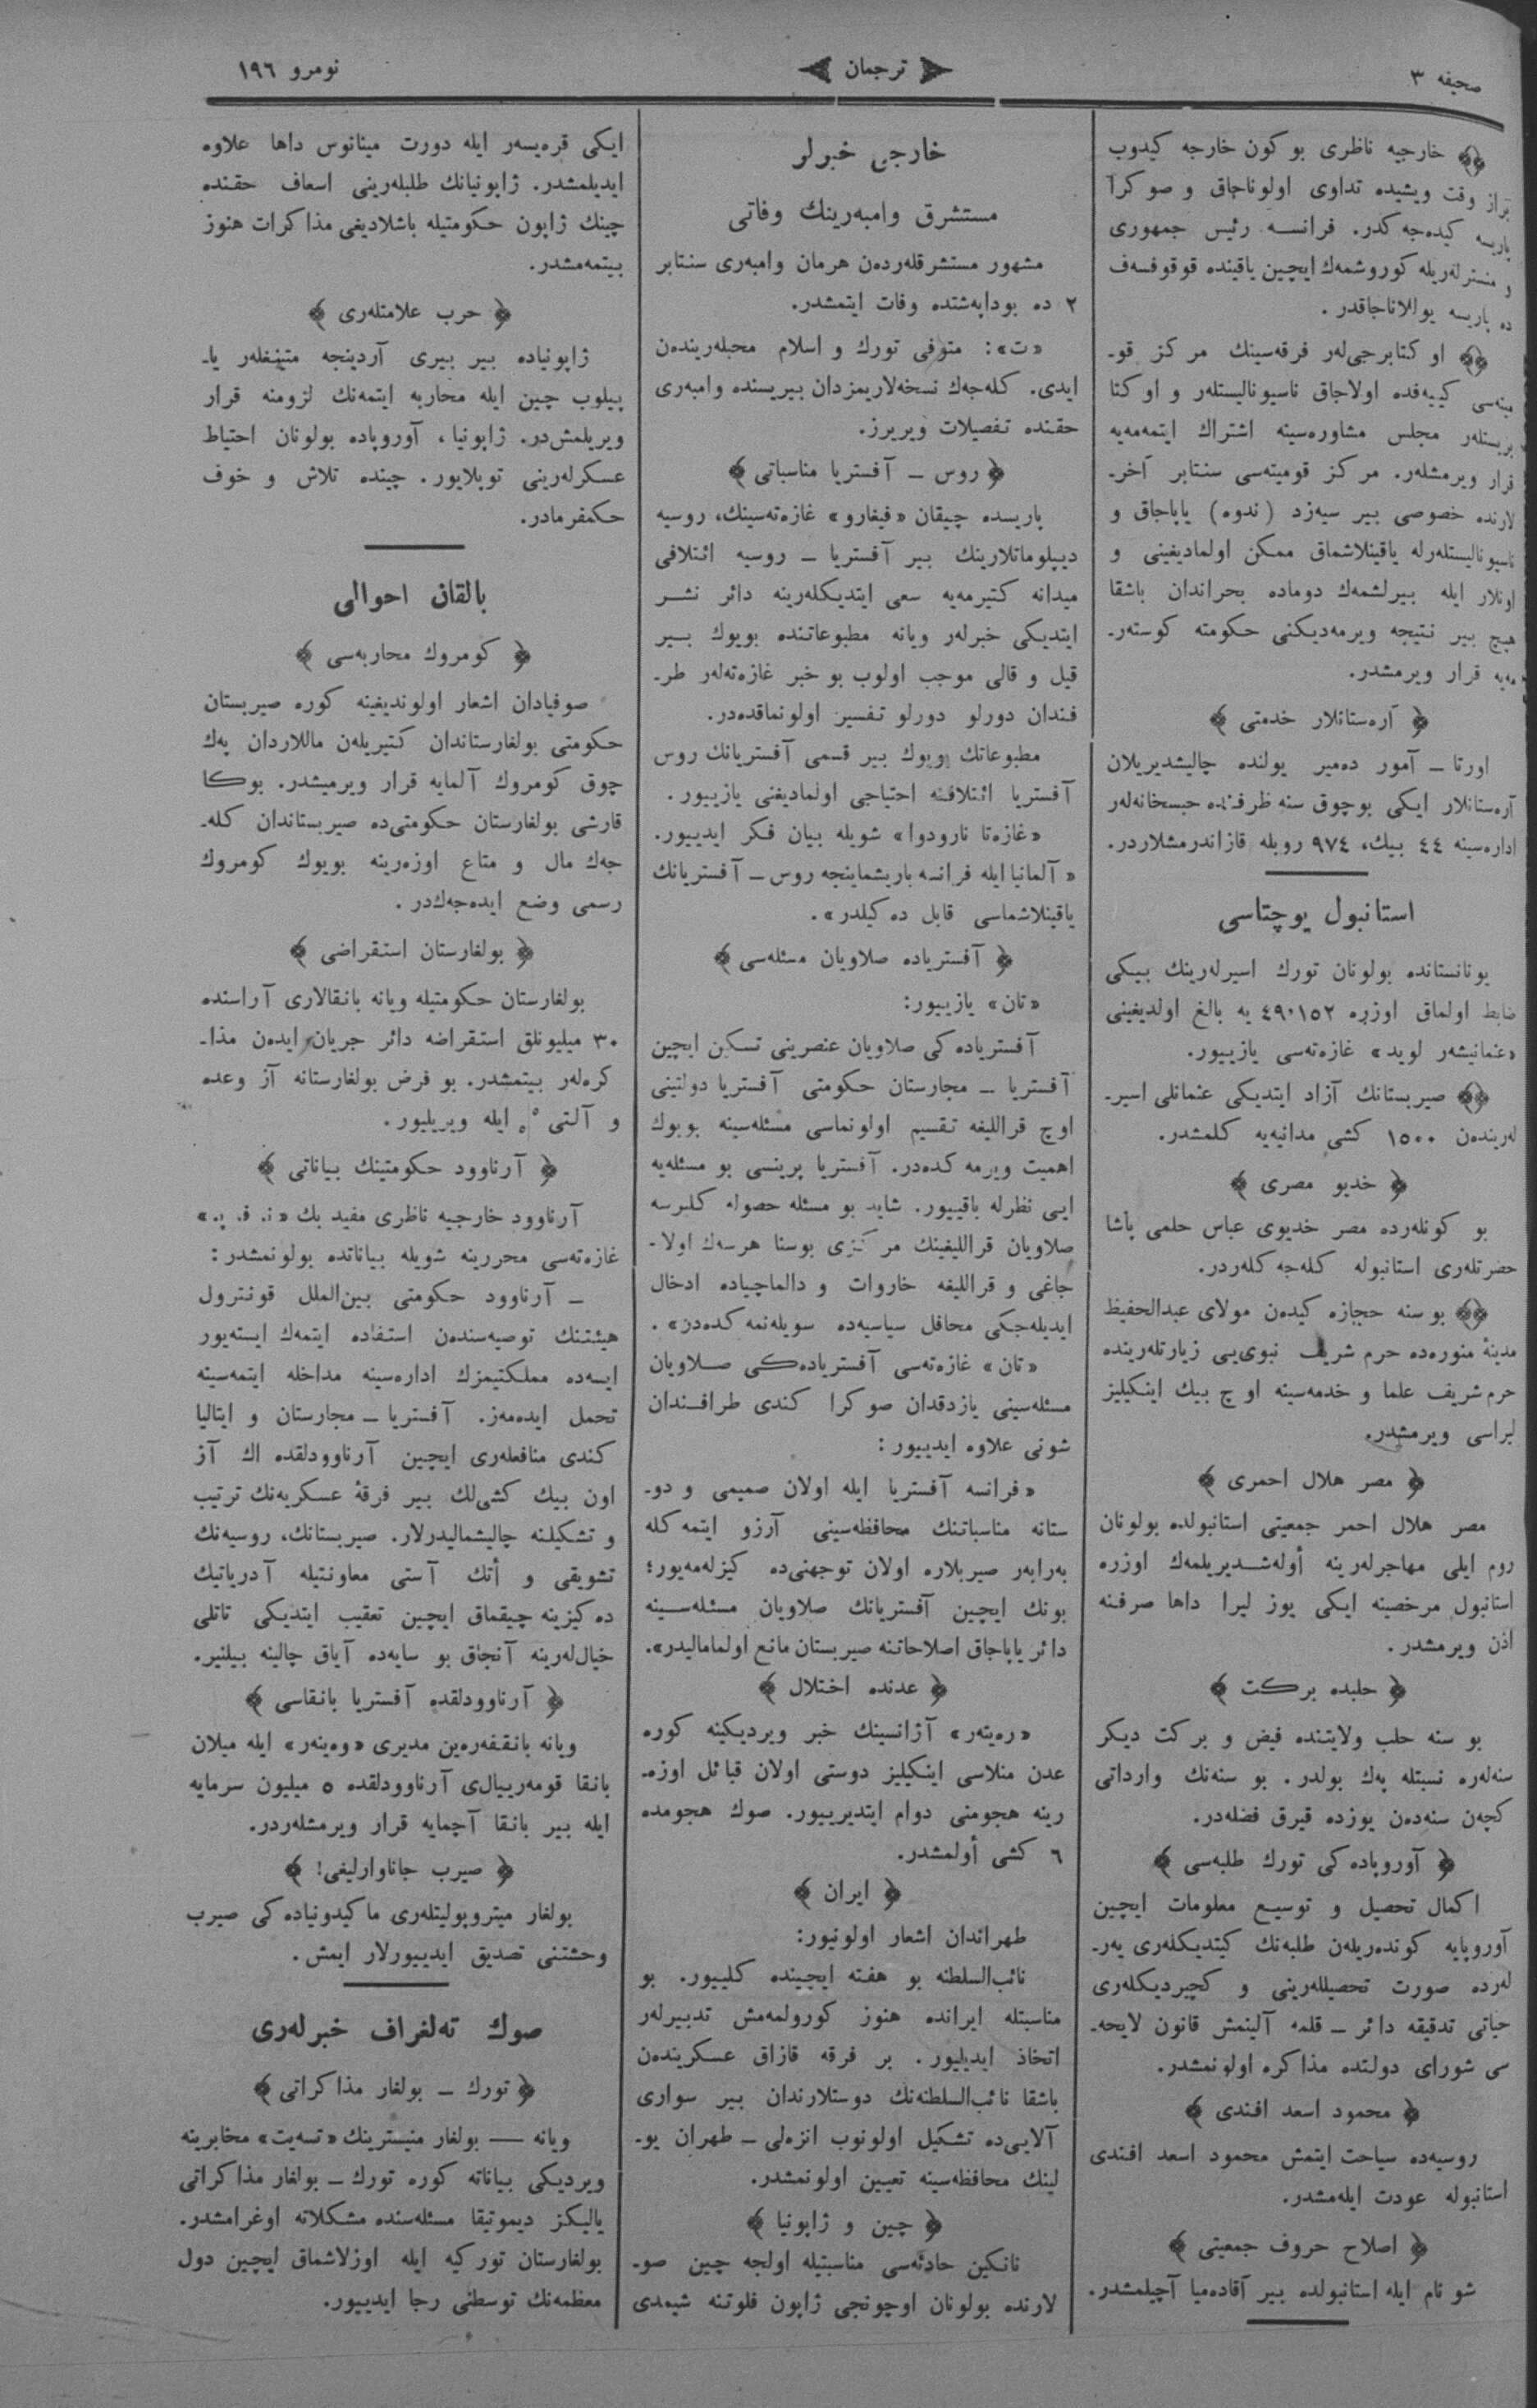 صحیفه ۳
ترجمان
نومرو ۱۹٦
خارجیه ناظری بو کون خارجه کیدوب
براز وقت ویشیده تداوی اولوناجاق و صوکرا
پاریسه کیده‌جه‌کدر. فرانسه رئیس جمهوری
و منسترلەریله کوروشمه‌ك ایچین یاقینده قوقوفسه‌ف
ده پاریسه یوللاناجاقدر .
اوکتابرجی‌لەر فرقه‌سینك مرکز قو-
میته‌سی کییه‌فده اولاجاق ناسیونالیستلەر و اوکتا
بریستلەر مجلس مشاوره‌سینه اشتراك ایتمه‌مه‌یه
قرار ویرمشلەر. مرکز قومیته‌سی سنتابر آخر-
لارنده خصوصی بیر سیه‌زد (ندوه) یاپاجاق و
ناسیونالیستلەرله یاقینلاشماق ممکن اولمادیغینی و
اونلار ایله بیرلشمه‌ك دوماده بحراندان باشقا
هیچ بیر نتیجه ویرمه‌دیکنی حکومته کوسته‌ر-
مه‌یه قرار ویرمشدر.
﴿ آره‌ستانلار خدمتی ﴾
اورتا — آمور ده‌میر یولنده چالیشدیریلان
آره‌ستانلار ایکی بوچوق سنه ظرفنده حبسخانه‌لەر
اداره‌سینه ٤٤ بیك، ۹۷٤ روبله قازاندرمشلاردر.
استانبول پوچتاسی
یونانستانده بولونان تورك اسیرلەرینك بیکی
ضابط اولماق اوزره ٤٩٠١٥٢ یه بالغ اولدیغینی
«عثمانیشەر لوید» غازه‌ته‌سی یازییور.
صیربستانك آزاد ایتدیکی عثمانلی اسیر-
لەریندەن ۱٥۰۰ کشی مدانیه‌یه کلمشدر.
﴿ خدیو مصری ﴾
بو کونلەرده مصر خدیوی عباس حلمی پاشا
حضرتلەری استانبوله کله‌جه‌کلەردر.
بو سنه حجازه کیدەن مولای عبدالحفیظ
مدینهٔ منوره‌ده حرم شریف نبوی‌یی زیارتلەرینده
حرم شریف علما و خدمه‌سینه اوچ بیك اینکیلیز
لیراسی ویرمشدر.
﴿ مصر هلال احمری ﴾
مصر هلال احمر جمعیتی استانبولده بولونان
روم ایلی مهاجرلەرینه أوله‌شدیریلمه‌ك اوزره
استانبول مرخصینه ایکی یوز لیرا داها صرفنه
اذن ویرمشدر .
﴿ حلبده برکت ﴾
بو سنه حلب ولایتنده فیض و برکت دیکر
سنه‌لەره نسبتله پەك بولدر. بو سنه‌نك وارداتی
کچەن سنه‌دەن یوزده قیرق فضله‌در.
﴿ آوروپاده‌کی تورك طلبه‌سی ﴾
اکمال تحصیل و توسیع معلومات ایچین
آوروپایه کوندەریلەن طلبه‌نك کیتدیکلەری یەر-
لەرده صورت تحصیللەرینی و کچیردیکلەری
حیاتی تدقیقه دائر — قلمه آلینمش قانون لایحه-
سی شورای دولتده مذاکره اولونمشدر.
﴿ محمود اسعد افندی ﴾
روسیه‌ده سیاحت ایتمش محمود اسعد افندی
استانبوله عودت ایله‌مشدر.
﴿ اصلاح حروف جمعیتی ﴾
شو نام ایله استانبولده بیر آقاده‌میا آچیلمشدر.
خارجی خبرلر
مستشرق وامبەرینك وفاتی
مشهور مستشرقلەردەن هرمان وامبەری سنتابر
۲ ده بوداپەشتده وفات ایتمشدر.
«ت»: متوفی تورك و اسلام محبلەریندەن
ایدی. کله‌جه‌ك نسخه‌لاریمزدان بیریسنده وامبەری
حقنده تفصیلات ویریرز.
﴿ روس — آفستریا مناسباتی ﴾
پاریسده چیقان «فیغارو» غازه‌ته‌سینك، روسیه
دیپلوماتلارینك بیر آفستریا — روسیه ائتلافی
میدانه کتیرمه‌یه سعی ایتدیکلەرینه دائر نشر
ایتدیکی خبرلەر ویانه مطبوعاتنده بویوك بیر
قیل و قالی موجب اولوب بو خبر غازه‌ته‌لەر طر-
فندان دورلو دورلو تفسیر اولونماقده‌در.
مطبوعاتك بویوك بیر قسمی آفستریانك روس
آفستریا ائتلافنه احتیاجی اولمادیغنی یازییور.
«غازه‌تا نارودوا» شویله بیان فکر ایدییور.
«آلمانیا ایله فرانسه باریشماینجه روس — آفستریانك
یاقینلاشماسی قابل ده‌کیلدر».
﴿ آفستریاده صلاویان مسئله‌سی ﴾
«تان» یازییور:
آفستریاده‌کی صلاویان عنصرینی تسکین ایچین
آفستریا — مجارستان حکومتی آفستریا دولتینی
اوچ قراللیغه تقسیم اولونماسی مسئله‌سینه بویوك
اهمیت ویرمه‌کده‌در. آفستریا پرینسی بو مسئله‌یه
ایی نظرله باقییور. شاید بو مسئله حصوله کلیرسه
صلاویان قراللیغینك مرکزی بوسنا هرسەك اولا-
جاغی و قراللیغه خاروات و دالماچیاده ادخال
ایدیله‌جکی محافل سیاسیه‌ده سویله‌نمه‌کده‌در» .
«تان» غازه‌ته‌سی آفستریاده‌کی صلاویان
مسئله‌سینی یازدقدان صوکرا کندی طرافندان
شونی علاوه ایدییور :
«فرانسه آفستریا ایله اولان صمیمی و دو-
ستانه مناسباتنك محافظه‌سینی آرزو ایتمه‌کله
بەرابەر صیربلاره اولان توجهنی‌ده کیزله‌مه‌یور؛
بونك ایچین آفستریانك صلاویان مسئله‌سینه
دائر یاپاجاق اصلاحاتنه صیربستان مانع اولمامالیدر».
﴿ عدنده اختلال ﴾
«رەیتەر» آژانسینك خبر ویردیکینه کوره
عدن منلاسی اینکیلیز دوستی اولان قبائل اوزه-
رینه هجومنی دوام ایتدیرییور. صوك هجومده
٦ کشی أولمشدر.
﴿ ایران ﴾
طهراندان اشعار اولونیور:
نائب‌السلطنه بو هفته ایچینده کلییور. بو
مناسبتله ایرانده هنوز کورولمه‌مش تدبیرلەر
اتخاذ ایدیلیور. بر فرقه قازاق عسکریندەن
باشقا نائب‌السلطنه‌نك دوستلارندان بیر سواری
آلایی‌ده تشکیل اولونوب انزه‌لی — طهران یو-
لینك محافظه‌سینه تعیین اولونمشدر.
﴿ چین و ژاپونیا ﴾
نانکین حادثه‌سی مناسبتیله اولجه چین صو-
لارنده بولونان اوچونجی ژاپون فلوتنه شیمدی
ایکی قره‌یسەر ایله دورت مینانوس داها علاوه
ایدیلمشدر. ژاپونیانك طلبلەرینی اسعاف حقنده
چینك ژاپون حکومتیله باشلادیغی مذاکرات هنوز
بیتمه‌مشدر.
﴿ حرب علامتلەری ﴾
ژاپونیاده بیر بیری آردینجه متینغلەر یا-
پیلوب چین ایله محاربه ایتمه‌نك لزومنه قرار
ویریلمش‌در. ژاپونیا، آوروپاده بولونان احتیاط
عسکرلەرینی توپلایور. چینده تلاش و خوف
حکمفرمادر.
بالقان احوالی
﴿ کومروك محاربه‌سی ﴾
صوفیادان اشعار اولوندیغینه کوره صیربستان
حکومتی بولغارستاندان کتیریلەن ماللاردان پەك
چوق کومروك آلمایه قرار ویرمیشدر. بوکا
قارشی بولغارستان حکومتی‌ده صیربستاندان کله-
جه‌ك مال و متاع اوزه‌رینه بویوك کومروك
رسمی وضع ایده‌جه‌ك‌در .
﴿ بولغارستان استقراضی ﴾
بولغارستان حکومتیله ویانه بانقالاری آراسنده
۳۰ میلیونلق استقراضه دائر جریان ایدەن مذا-
کره‌لەر بیتمشدر. بو قرض بولغارستانه آز وعده
و آلتی ٥/٥ ایله ویریلیور.
﴿ آرناوود حکومتینك بیاناتی ﴾
آرناوود خارجیه ناظری مفید بك «ن. ف. پ.»
غازه‌ته‌سی محررینه شویله بیاناتده بولونمشدر:
— آرناوود حکومتی بین‌الملل قونترول
هیئتنك توصیه‌سندەن استفاده ایتمه‌ك ایسته‌یور
ایسه‌ده مملکتیمزك اداره‌سینه مداخله ایتمه‌سینه
تحمل ایده‌مه‌ز. آفستریا — مجارستان و ایتالیا
کندی منافعلەری ایچین آرناوودلقده اك آز
اون بیك کشی‌لك بیر فرقهٔ عسکریه‌نك ترتیب
و تشکیلنه چالیشمالیدرلار. صیربستانك، روسیه‌نك
تشویقی و أتك آستی معاونتیله آدریاتیك
ده‌کیزینه چیقماق ایچین تعقیب ایتدیکی تاتلی
خیال‌لەرینه آنجاق بو سایه‌ده آیاق چالینه بیلنیر.
﴿ آرناوودلقده آفستریا بانقاسی ﴾
ویانه بانقفەرەین مدیری «وەینەر» ایله میلان
بانقا قومەرییال‌ی آرناوودلقده ٥ میلیون سرمایه
ایله بیر بانقا آچمایه قرار ویرمشلەردر.
﴿ صیرب جاناوارلیغی! ﴾
بولغار میتروپولیتلەری ماکیدونیاده‌کی صیرب
وحشتنی تصدیق ایدییورلار ایمش.
صوك تەلغراف خبرلەری
﴿ تورك — بولغار مذاکراتی ﴾
ویانه — بولغار منسترینك «تسەیت» مخابرینه
ویردیکی بیاناته کوره تورك — بولغار مذاکراتی
یالیکز دیموتیقا مسئله‌سنده مشکلاته اوغرامشدر.
بولغارستان تورکیه ایله اوزلاشماق ایچین دول
معظمه‌نك توسطنی رجا ایدییور.